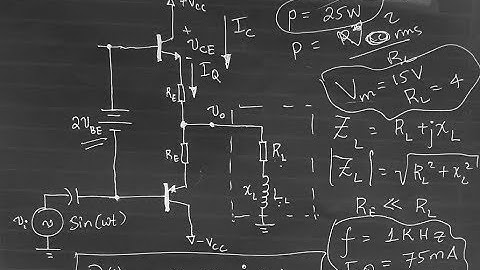 +Vcc
I_C
+
V_CE
-
I_Q
R_E
V_o
2V_BE
R_E
R_L
X_L
L_L
V_i
Sin(wt)
-Vcc
P = 25W
P =
rms
R_L
V_m = 15V
R_L = 4
Z_L = R_L + jX_L
|Z_L| = √R_L² + X_L²
R_E ≪ R_L
f = 1KHz
= 75mA